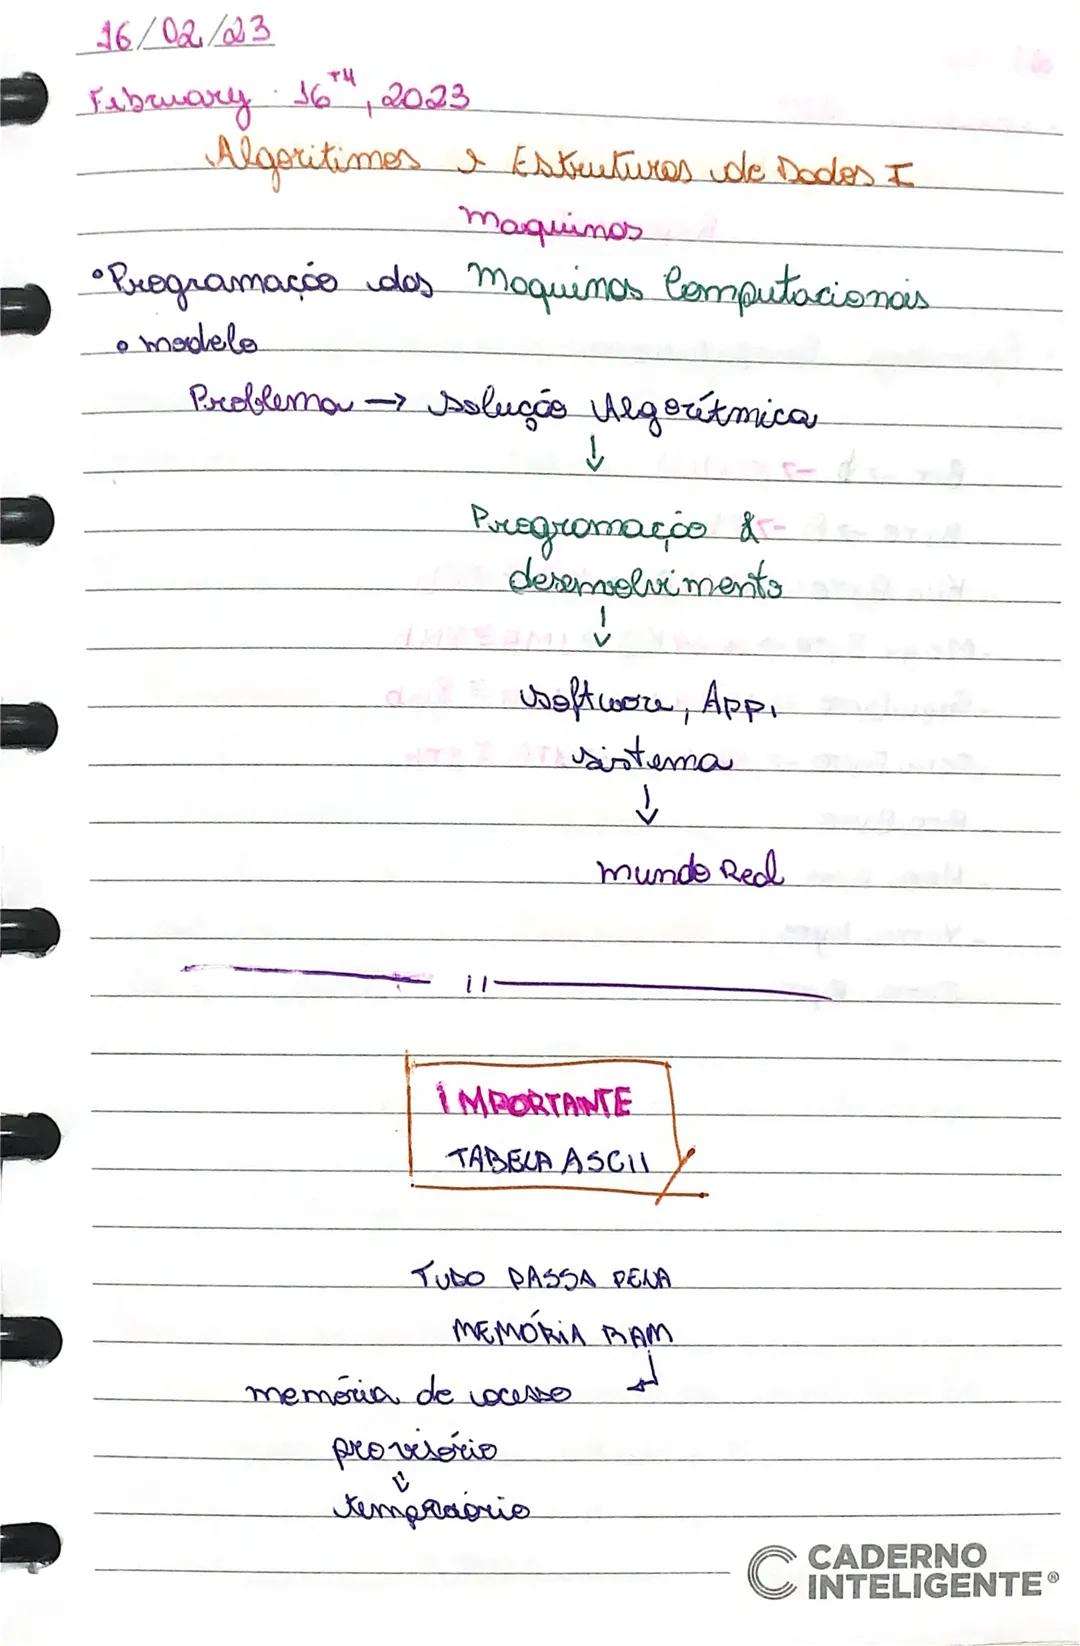 16/02/23
February 16TH, 2023
Algoritimos e Estruturas de Dados I
maquinas
• Programação das Maquinas Computacionais
• modelo
Problema → Solução Algorítmica
↓
Programação &
desenvolvimento
↓
software, App,
sistema
↓
mundo Real
11
IMPORTANTE
TABELA ASCII
TUDO PASSA PELA
MEMÓRIA RAM
memória de acesso
provisório
temporário
CADERNO
INTELIGENTE®